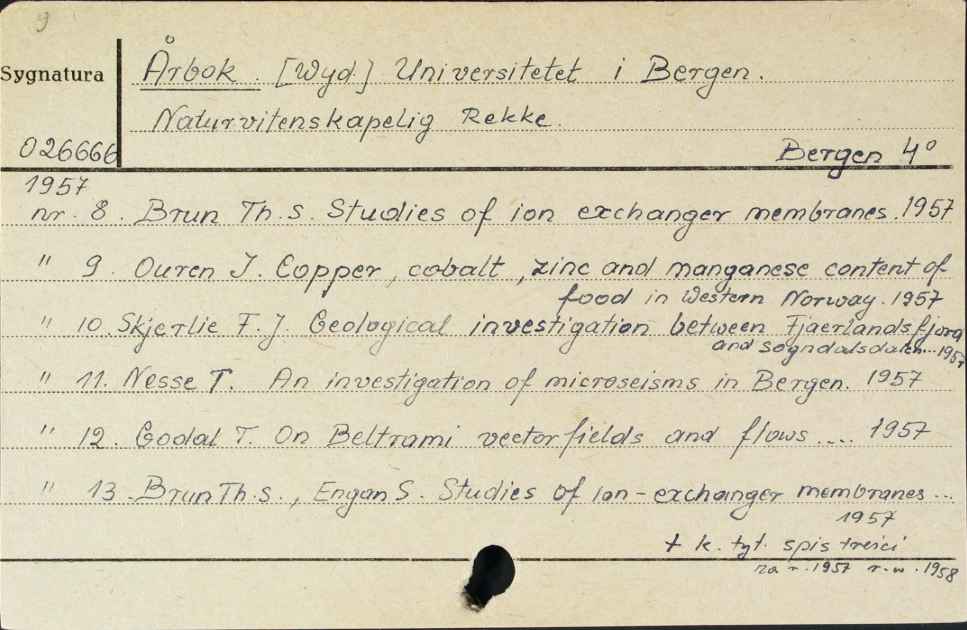 9
Sygnatura
Årbok. [Wyd.] Universitetet i Bergen.
Naturvitenskapelig Rekke.
026666
Bergen 4°
1957
nr. 8. Brun Th. S. Studies of ion exchanger membranes. 1957
" 9. Ouren J. Copper, cobalt, zinc and manganese content of
food in Western Norway. 1957
" 10. Skjerlie F. J. Geological investigation between Fjaerlandsfjord
and Sogndalsdalen... 1957
" 11. Nesse T. An investigation of microseisms in Bergen. 1957
" 12. Godal T. On Beltrami vectorfields and flows .... 1957
" 13. Brun Th. S., Engan S. Studies of ion-exchanger membranes...
1957
+ k. tyt. spis treści
za r. 1957 r. w. 1958